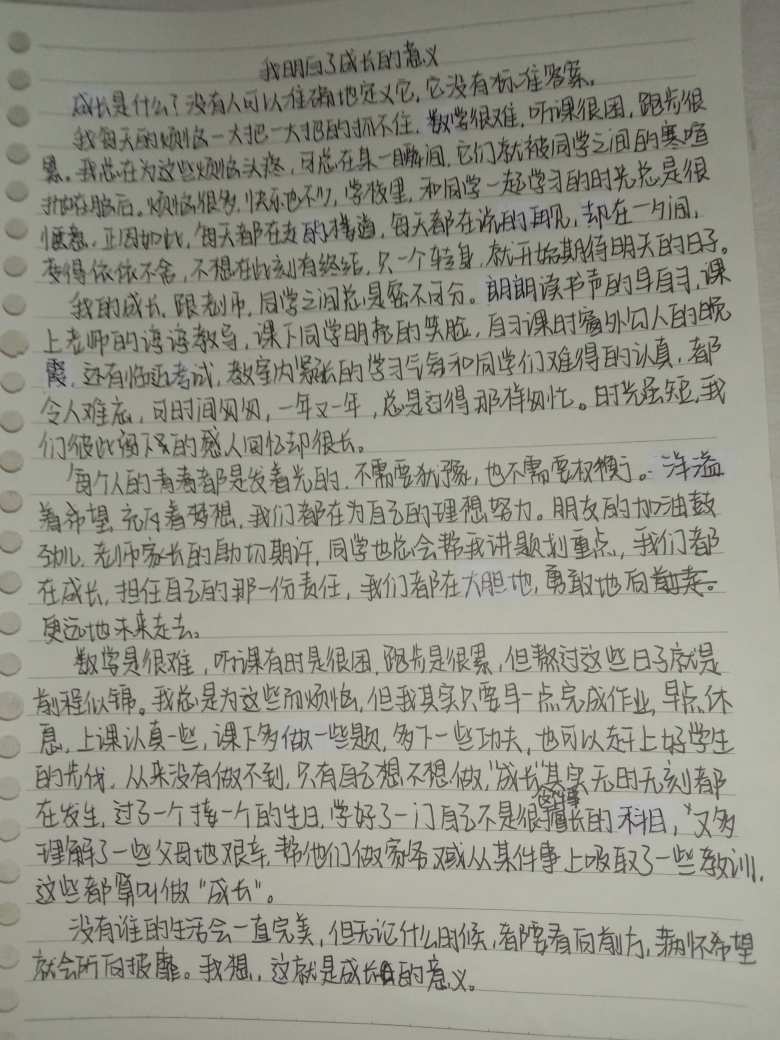 我明白了成长的意义
成长是什么?没有人可以准确地定义它,它没有标准答案。
我每天的烦恼一大把一大把的抓不住,数学很难,听课很困,跑步很
累。我总在为这些烦恼头疼,可总在某一瞬间,它们就被同学之间的寒喧
抛在脑后。烦恼很多,快乐也不少,学校里,和同学一起学习的时光总是很
惬意。正因如此,每天都在走的楼道,每天都在说的再见,却在一夕间,
变得依依不舍,不想在此刻有终结,只一个转身,就开始期待明天的日子。
我的成长,跟老师,同学之间总是密不可分。朗朗读书声的早自习,课
上老师的谆谆教导,课下同学明亮的笑脸,自习课时窗外勾人的晚
霞,还有临近考试,教室内紧张的学习气氛和同学们难得的认真,都
令人难忘,可时间匆匆,一年又一年,总是过得那样匆忙。时光虽短,我
们彼此留下的感人回忆却很长。
每个人的青春都是发着光的,不需要犹豫,也不需要权衡。洋溢
着希望,充斥着梦想,我们都在为自己的理想努力。朋友的加油鼓
劲儿,老师家长的助切期许,同学也总会帮我讲题划重点,我们都
在成长,担任自己的那一份责任,我们都在大胆地,勇敢地向
更远地未来走去。
数学是很难,听课有时是很困,跑步是很累,但熬过这些日子就是
前程似锦。我总是为这些而烦恼,但我其实只要早一点完成作业,早点休
息,上课认真一些,课下多做一些题,多下一些功夫,也可以赶上好学生
的步伐,从来没有做不到,只有自己想不想做,"成长"其实无时无刻都
在发生,过了一个接一个的生日,学好了一门自己不是很擅长的科目,又多
理解了一些父母地艰辛,帮他们做家务或从某件事上吸取了一些教训,
这些都算叫做"成长"。
没有谁的生活会一直完美,但无论什么时候,都要看向前方,满怀希望
就会所向披靡。我想,这就是成长的意义。